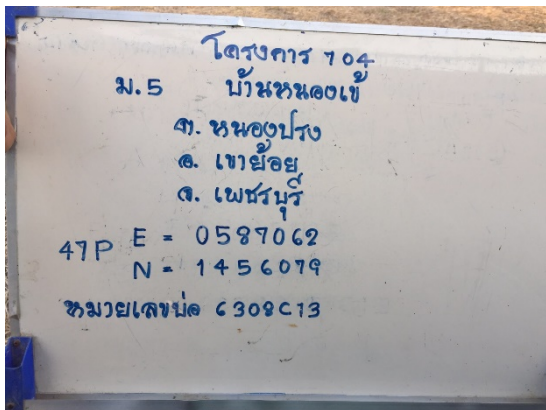 โครงการ 704
ม.5 บ้านหนองเข้
ต. หนองปรง
อ. เขาย้อย
จ. เพชรบุรี
47P E = 0587062
N = 1456079
หมายเลขบ่อ 6308C13